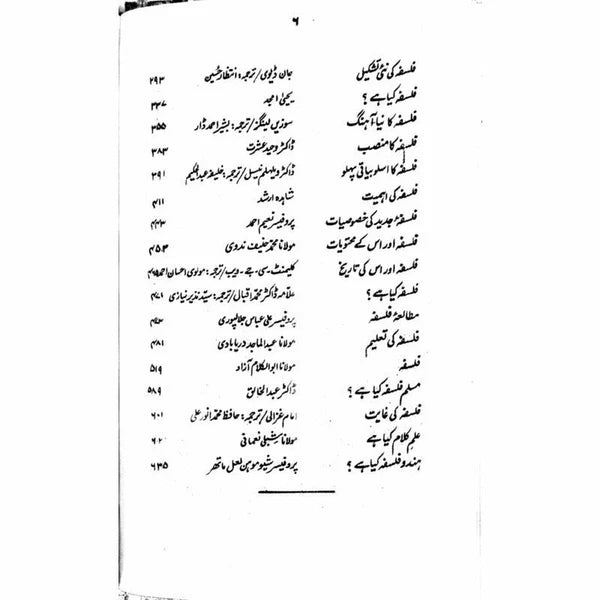 ۶
فلسفہ کی نئی تشکیل جان ڈیوی/ترجمہ: انتظار حسین ۲۹۳
فلسفہ کیا ہے؟ یحییٰ امجد ۳۳۷
فلسفہ کا نیا آہنگ سوزین لینگر/ترجمہ: بشیر احمد ڈار ۳۵۵
فلسفہ کا منصب ڈاکٹر وحید عشرت ۳۸۳
فلسفہ کا اسلوبیاتی پہلو ڈاکٹر ویلہلم نیسل/ترجمہ: خلیفہ عبدالحکیم ۳۹۱
فلسفہ کی اہمیت شاہدہ ارشد ۴۱۱
فلسفۂ جدید کی خصوصیات پروفیسر نعیم احمد ۴۴۳
فلسفہ اور اس کے محتویات مولانا محمد حنیف ندوی ۴۵۳
فلسفہ اور اس کی تاریخ کلیمنٹ۔سی۔جے۔ویب/ترجمہ: مولوی احسان احمد
فلسفہ کیا ہے؟ علامہ ڈاکٹر محمد اقبال/ترجمہ: سید نذیر نیازی ۴۷۱
مطالعۂ فلسفہ پروفیسر علی عباس جلالپوری
فلسفہ کی تعلیم مولانا عبدالماجد دریابادی ۴۸۱
فلسفہ مولانا ابوالکلام آزاد ۵۱۹
مسلم فلسفہ کیا ہے؟ ڈاکٹر عبدالخالق ۵۸۹
فلسفہ کی غایت امام غزالی/ترجمہ: حافظ محمد انور علی ۶۰۱
علم کلام کیا ہے مولانا شبلی نعمانی ۶۲۰
ہندو فلسفہ کیا ہے؟ پروفیسر شیو موہن لعل ماتھر ۶۳۵